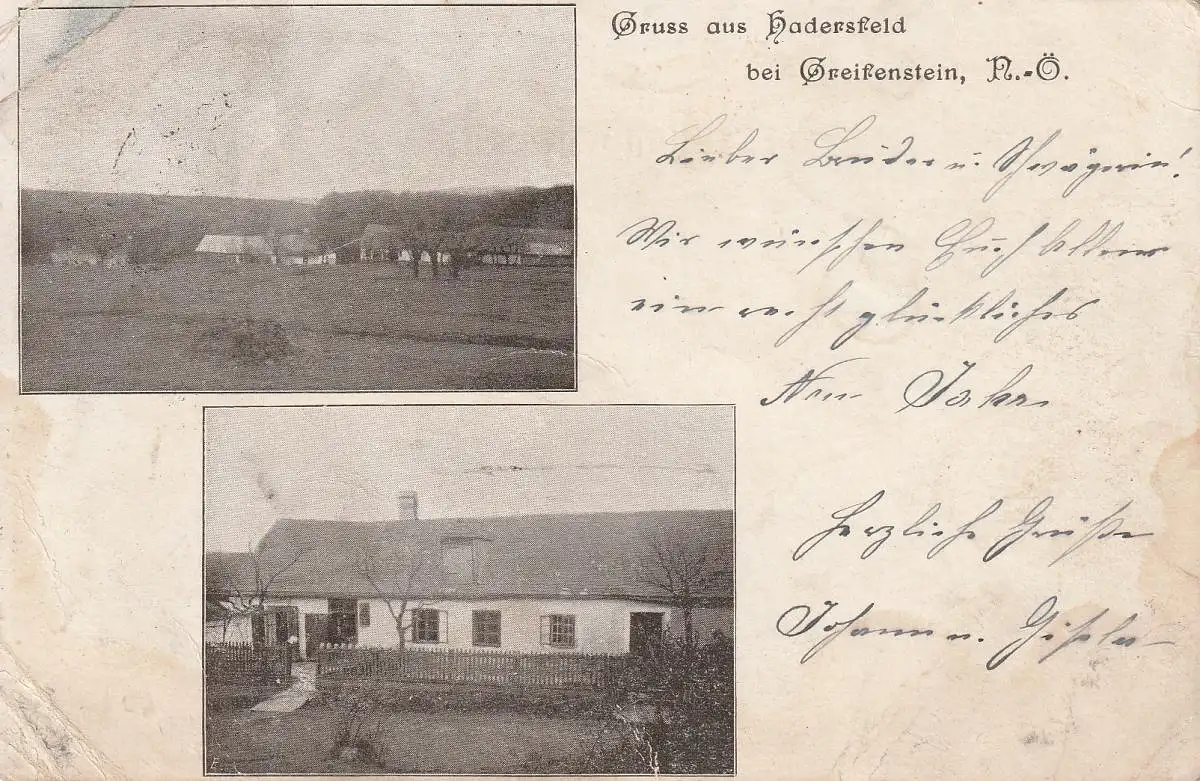 Gruss aus Hadersfeld
bei Greifenstein, N.-Ö.
Lieber Bruder u. Schwägerin!
Wir wünschen Euch Allen
ein recht glückliches
Neu Jahr
Herzliche Grüße
Johann u. Gisela